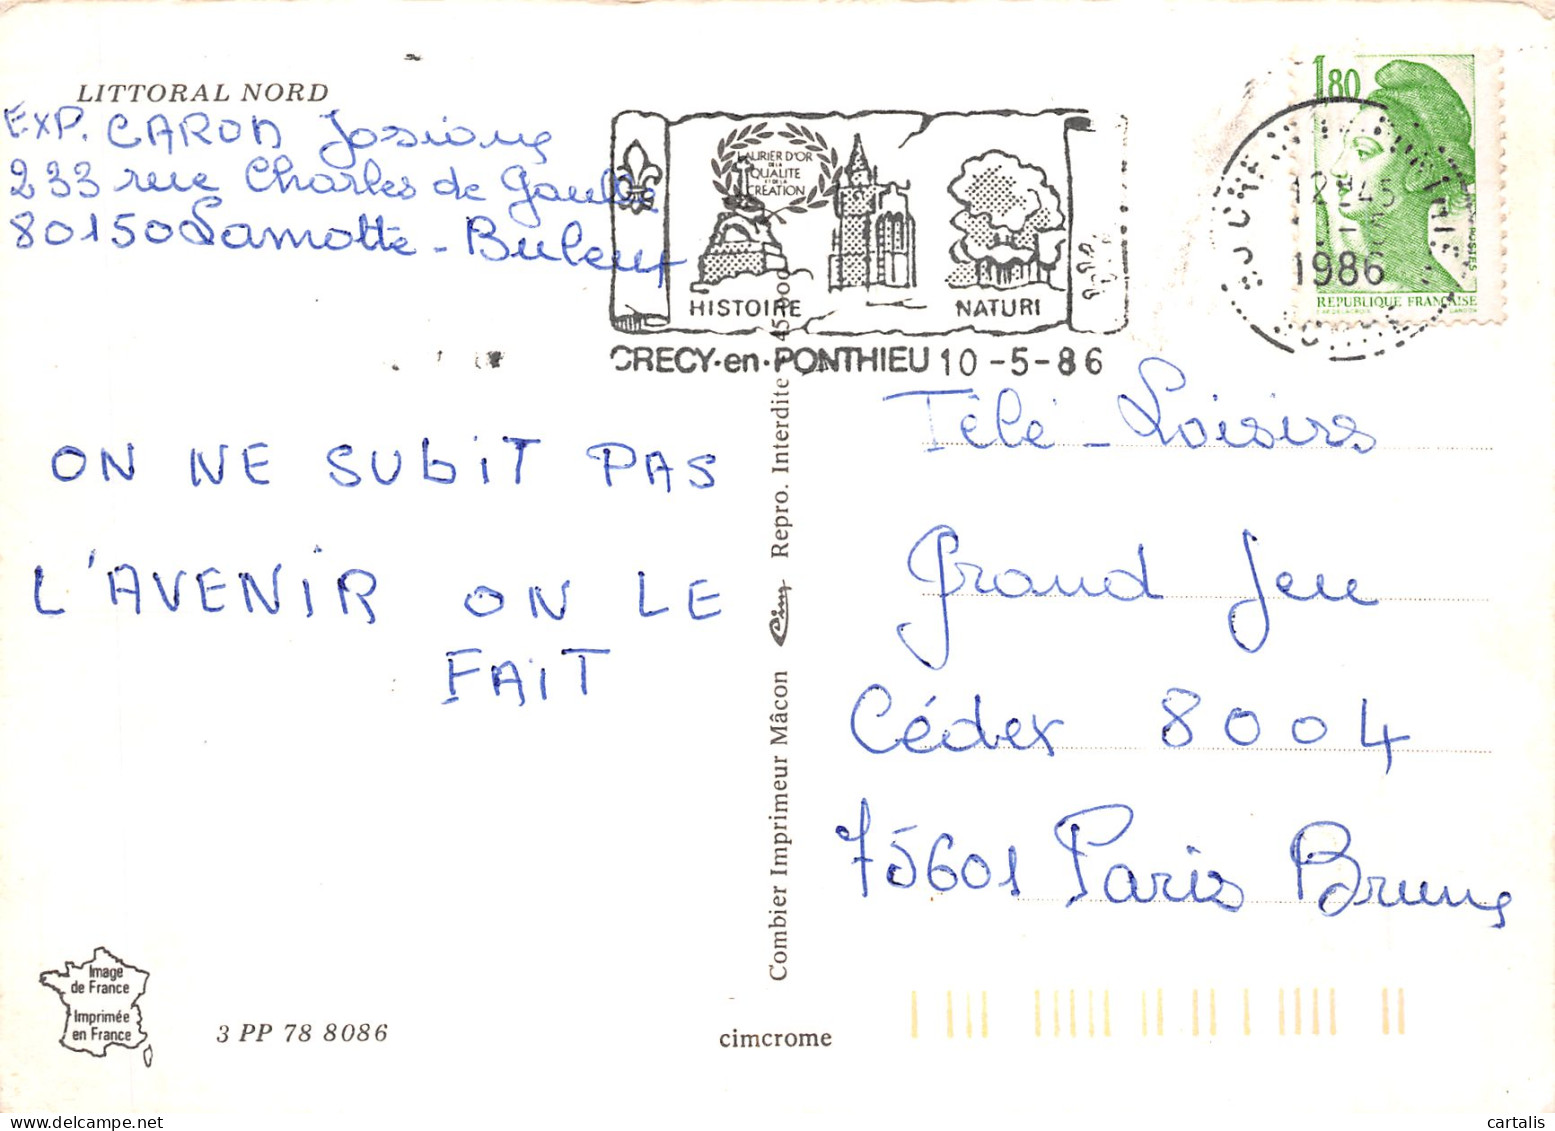 LITTORAL NORD
EXP. CARON Josiane
233 rue Charles de Gaulle
80150 Lamotte - Buleux
ON NE SUBIT PAS
L'AVENIR ON LE
FAIT
Image
de France
Imprimée
en France
3 PP 78 8086
cimcrome
Combier Imprimeur Mâcon Cim Repro. Interdite 45.000
LAURIER D'OR
DE LA
QUALITE
ET DE LA
CREATION
HISTOIRE NATURE
CRECY-en-PONTHIEU 10-5-86
1,80
12H45
1986
REPUBLIQUE FRANÇAISE
Télé-Loisirs
Grand Jeu
Cédex 8004
75601 Paris Brune
cartalis